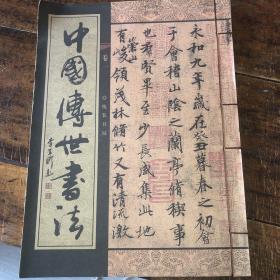 永和九年歲在癸丑暮春之初會
于會稽山陰之蘭亭脩稧事
也羣賢畢至少長咸集此地
有崇山峻領茂林脩竹又有清流激
卷
中國傳世書法